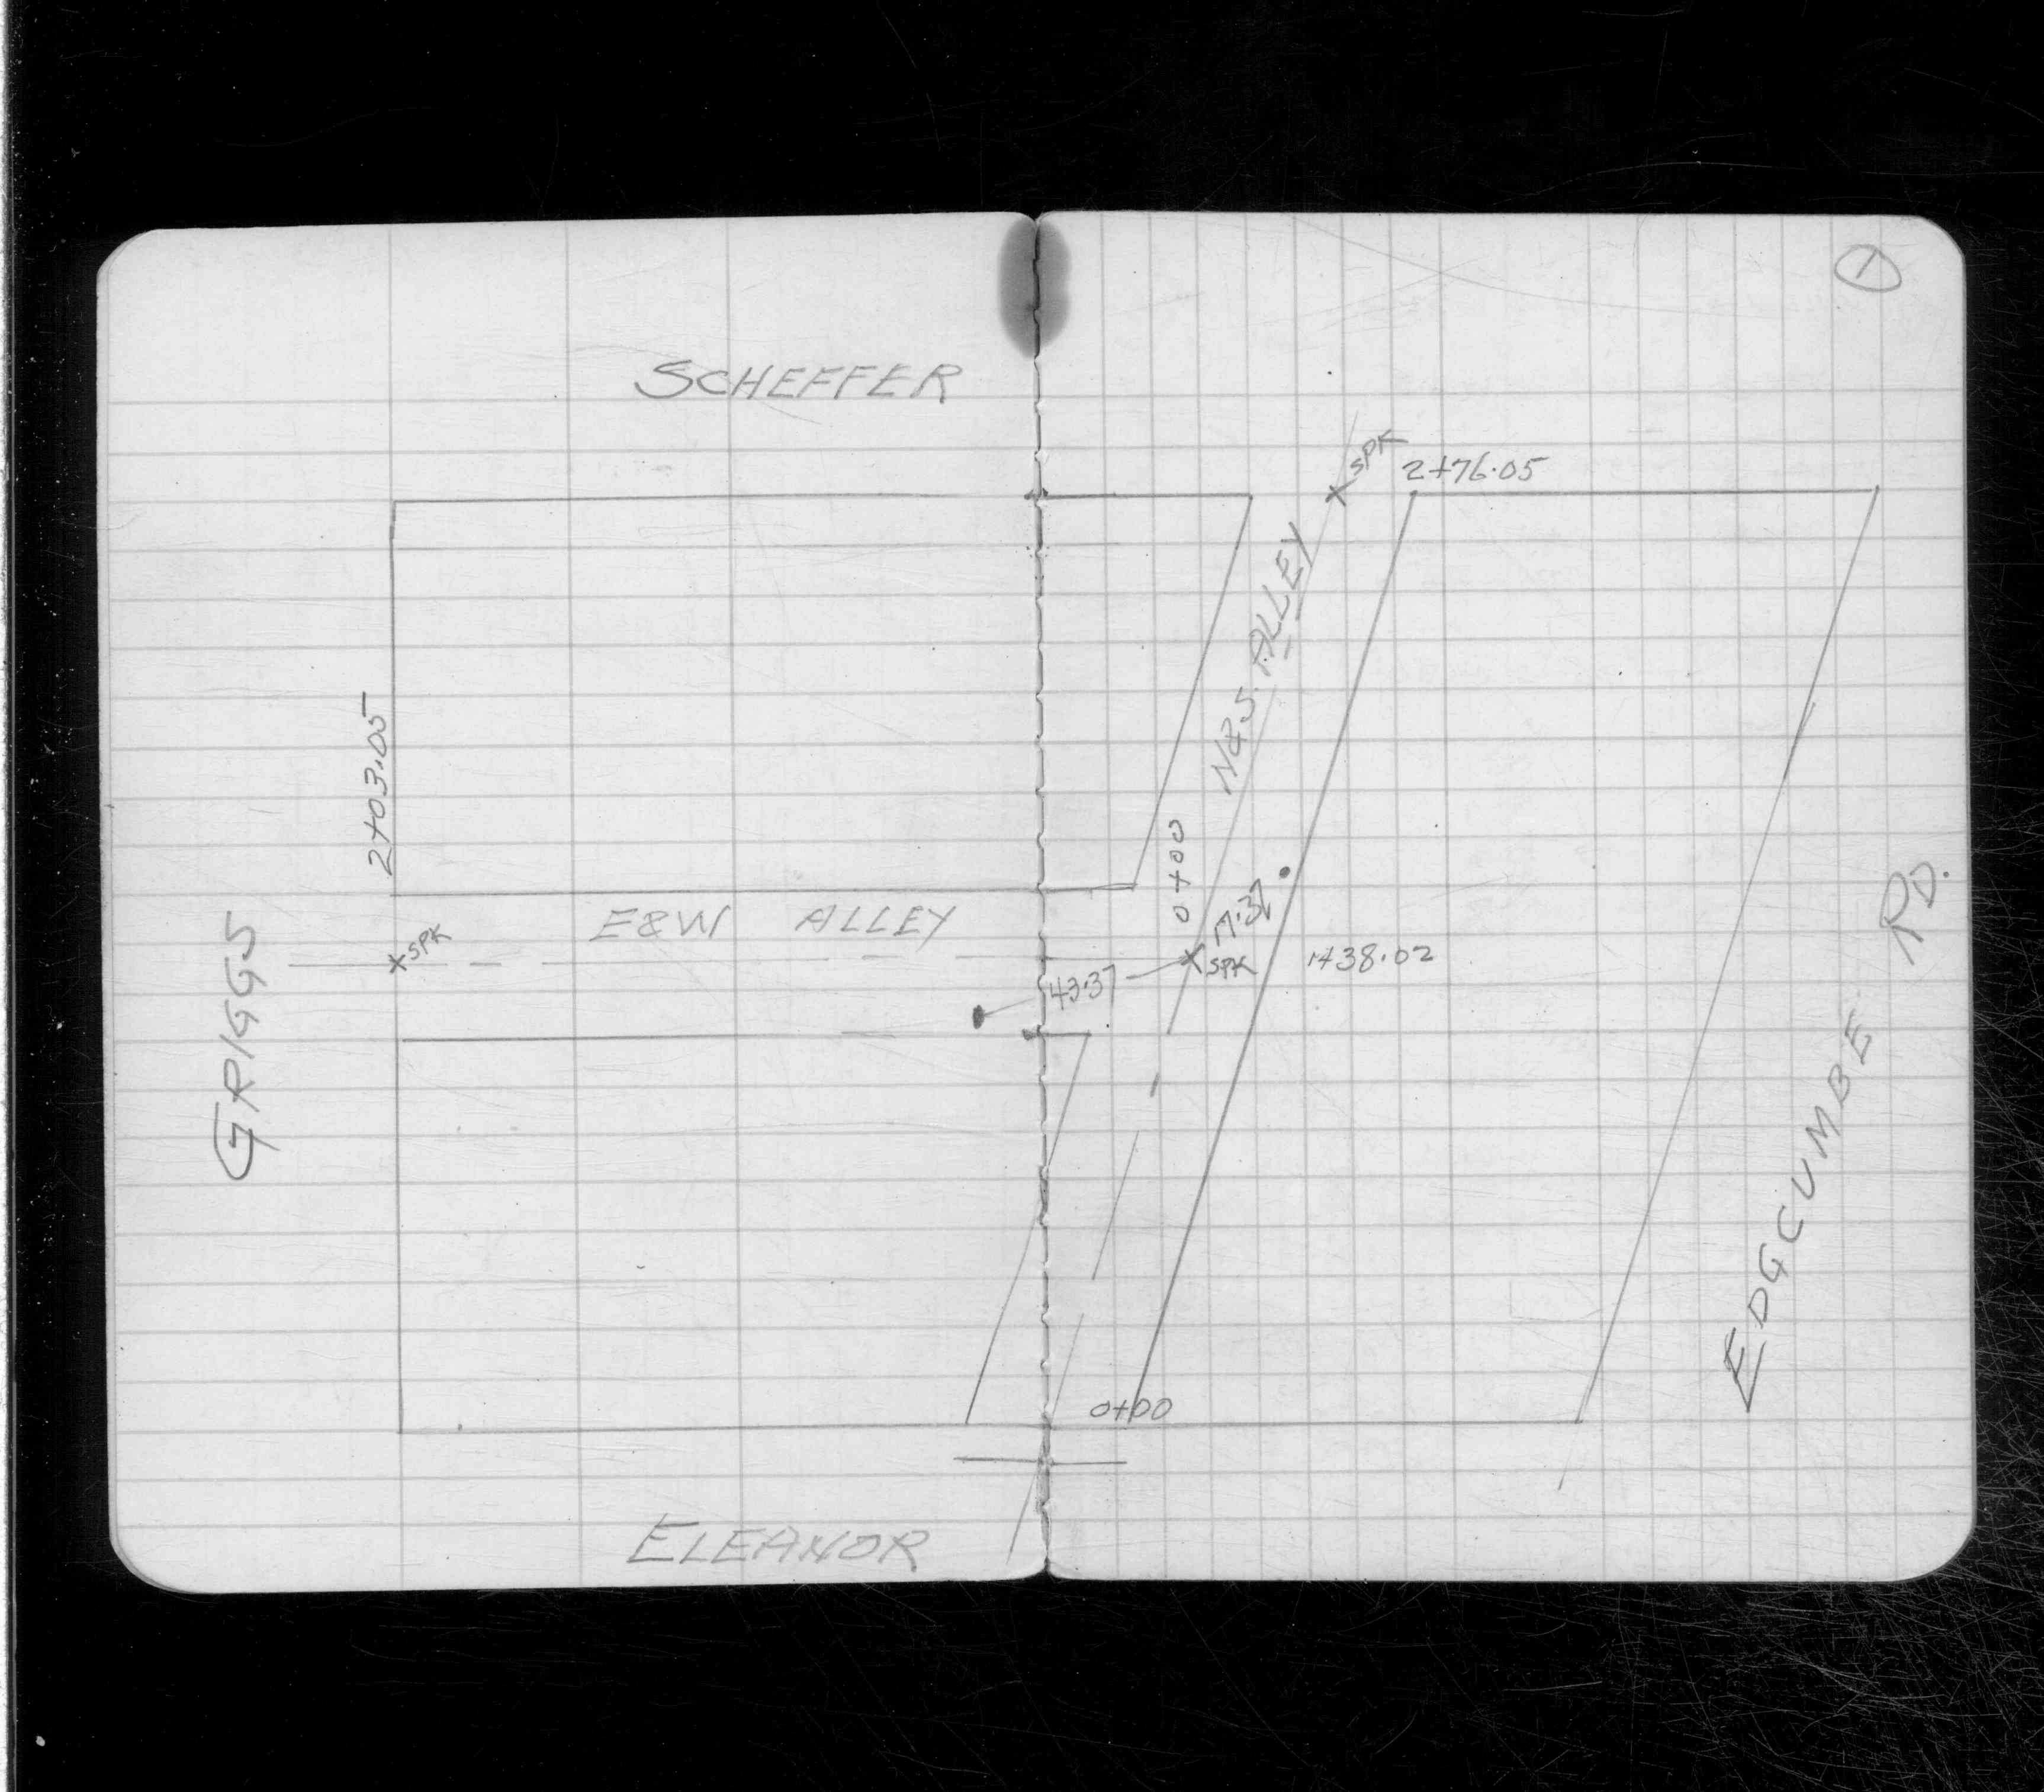 1
SCHEFFER
SPK
2+76.05
N&S. ALLEY
2+03.05
0+00
E&W ALLEY
SPK
GRIGGS
SPK
1+38.02
43.37
EDGCUMBE RD.
0+00
ELEANOR